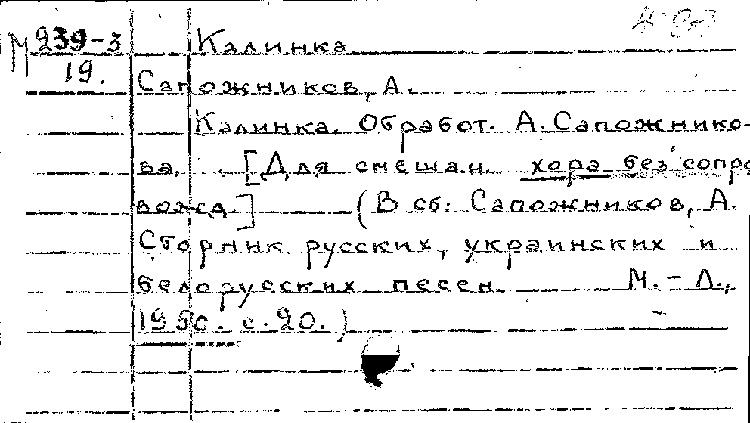 М 239-3 Калинка
19.
Сапожников, А.
Калинка. Обработ. А. Сапожнико-
ва. [Для смешан. хора без сопро
вожд.] (В сб: Сапожников, А.
Сборник русских, украинских и
белорусских песен. М. - Л.,
1950. с. 20.)